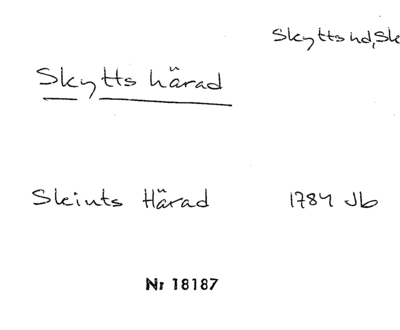 Skytts hd, Sk
Skytts härad
Skiuts Härad 1784 Jb
Nr 18187